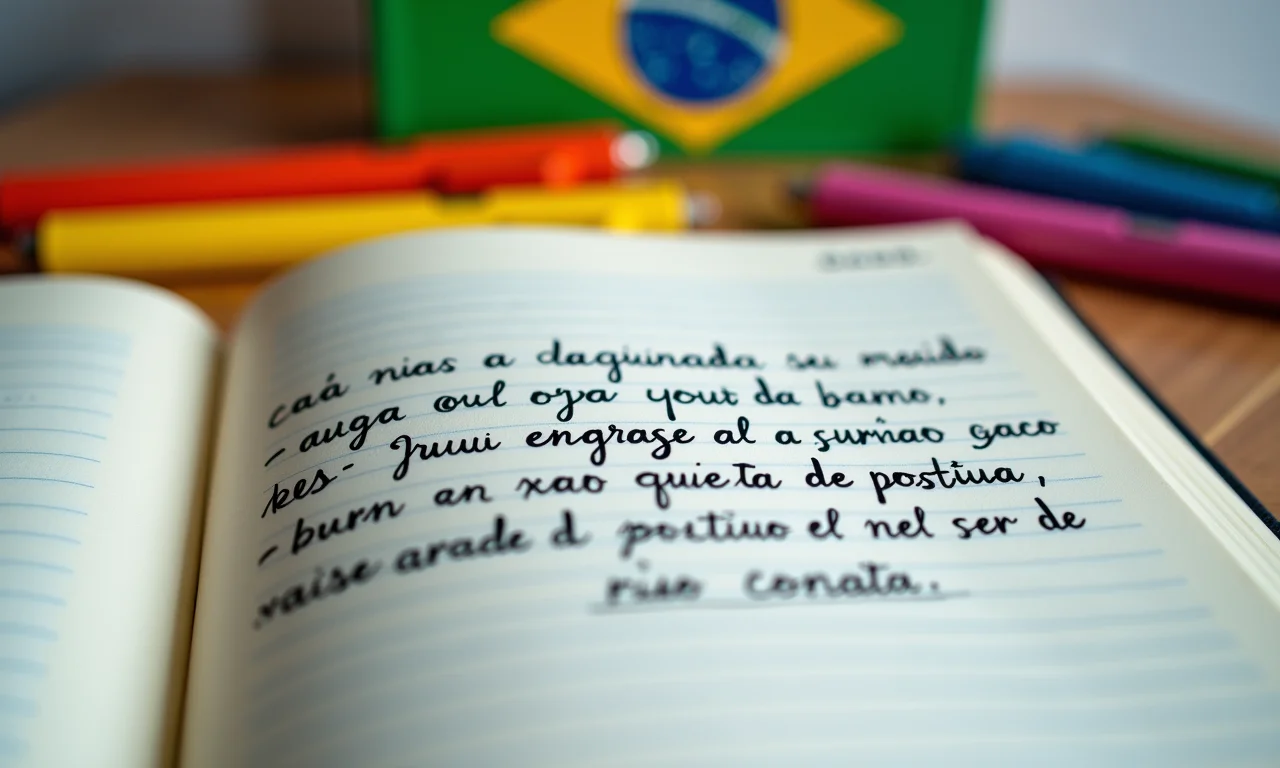 caá nias a dagiunada su
auga oul oya yout da bamo,
kes - Jruui engrase al a sumao gaco
burn an xao quieta de postiua,
xaise arade d postiuo el nel ser de
riso conata.